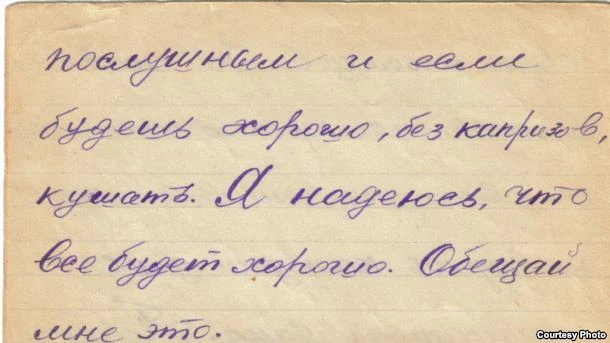 послушным и если
будешь хорошо, без капризов,
кушать. Я надеюсь, что
все будет хорошо. Обещай
мне это.
Courtesy Photo